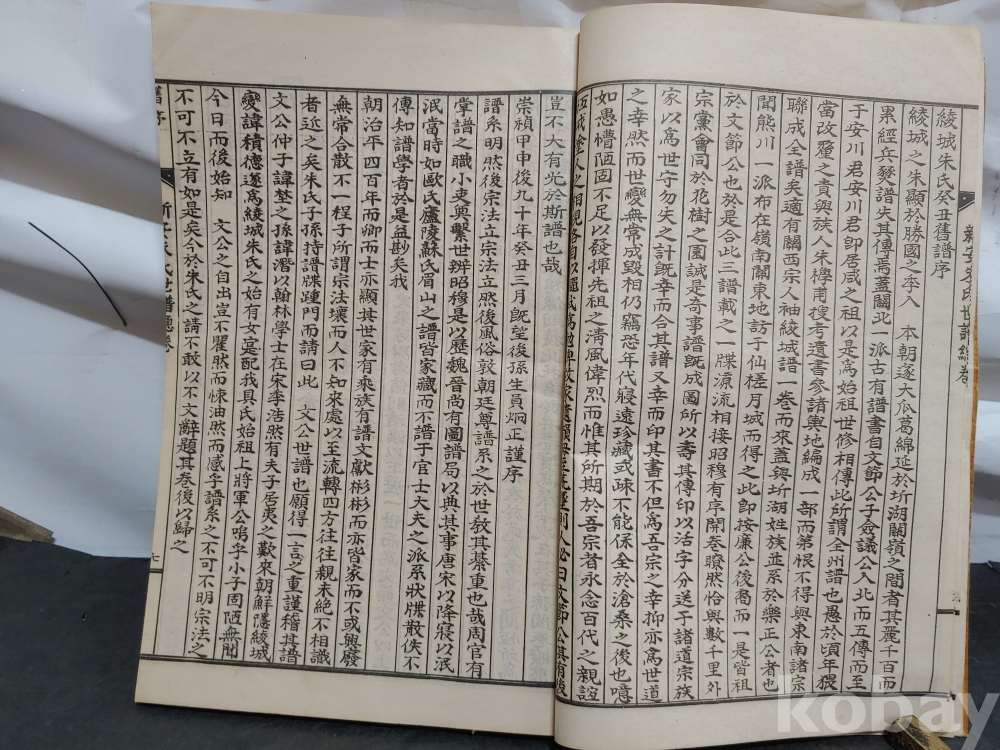 新安朱氏世譜總卷
綾城朱氏癸丑舊譜序
綾城之朱顯於勝國之季入 本朝遂大瓜葛綿延於圻湖關嶺之間者其麗千百而
累經兵燹譜失其傳焉蓋關北一派古有譜書自文節公子僉議公入北而五傳而至
于安川君安川君卽居咸之祖以是爲始祖世修相傳此所謂全州譜也愚於頃年猥
當改釐之責與族人朱㰒甫搜考遺書參諸輿地編成一部而第恨不得與東南諸宗
聯成全譜矣適有關西宗人袖綾城譜一卷而來蓋與圻湖姓族並系於樂正公者也
聞熊川一派布在嶺南關東地訪于仙槎月城而得之此卽按廉公後裔而一是皆祖
於文節公也於是合此三譜載之一牒源流相接昭穆有序開卷瞭然恰與數千里外
宗黨會同於花樹之園誠是奇事譜旣成圖所以壽其傳印以活字分送于諸道宗族
家以爲世守勿失之計旣幸而合其譜又幸而印其書不但爲吾宗之幸抑亦爲世道
之幸然而世變無常成毀相仍竊恐年代寖遠珍藏或疎不能保全於滄桑之後也噫
如愚懵陋固不足以發揮先祖之淸風偉烈而惟其所期於吾宗者永念百代之親誼
人必曰文節公其有後
豈不大有光於斯譜也哉
崇禎甲申後九十年癸丑三月旣望後孫生員炯正謹序
譜系明然後宗法立宗法立然後風俗敦朝廷尊譜系之於世敎其綦重也哉周官有
掌譜之職小吏奠繫世辨昭穆是以歷魏晉尙有圖譜局以典其事唐宋以降寢以泯
泯當時如歐氏廬陵蘇氏眉山之譜皆家藏而不譜于官士大夫之派系狀牒散佚不
傳知譜學者於是益尠矣我
朝治平四百年而卿而士亦顯其世家有乘族有譜文獻彬彬而亦皆家而不或與廢
無常合散不一程子所謂宗法壞而人不知來處以至流轉四方往往親未絶不相識
者近之矣朱氏子孫持譜牒踵門而請曰此 文公世譜也願得一言之重謹稽其譜
文公仲子諱埜之孫諱潛以翰林學士在宋季浩然有夫子居夷之歎來朝鮮隱綾城
變諱積德遂爲綾城朱氏之始有女寔配我具氏始祖上將軍公嗚乎小子固陋無聞
今日而後始知 文公之自出豈不瞿然而悚油然而感乎譜系之不可不明宗法之
不可不立有如是矣今於朱氏之請不敢以不文辭題其卷後以歸之
舊序
新安朱氏世譜總卷
七